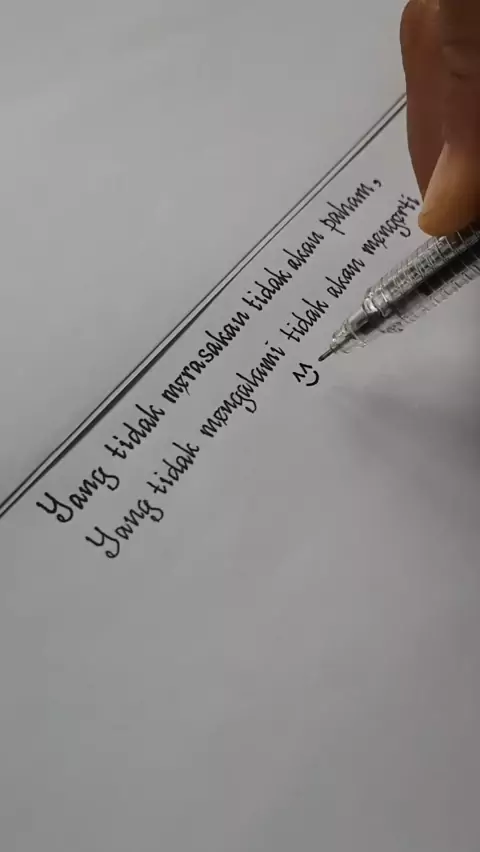 Yang tidak merasakan tidak akan paham,
Yang tidak mengalami tidak akan mengerti